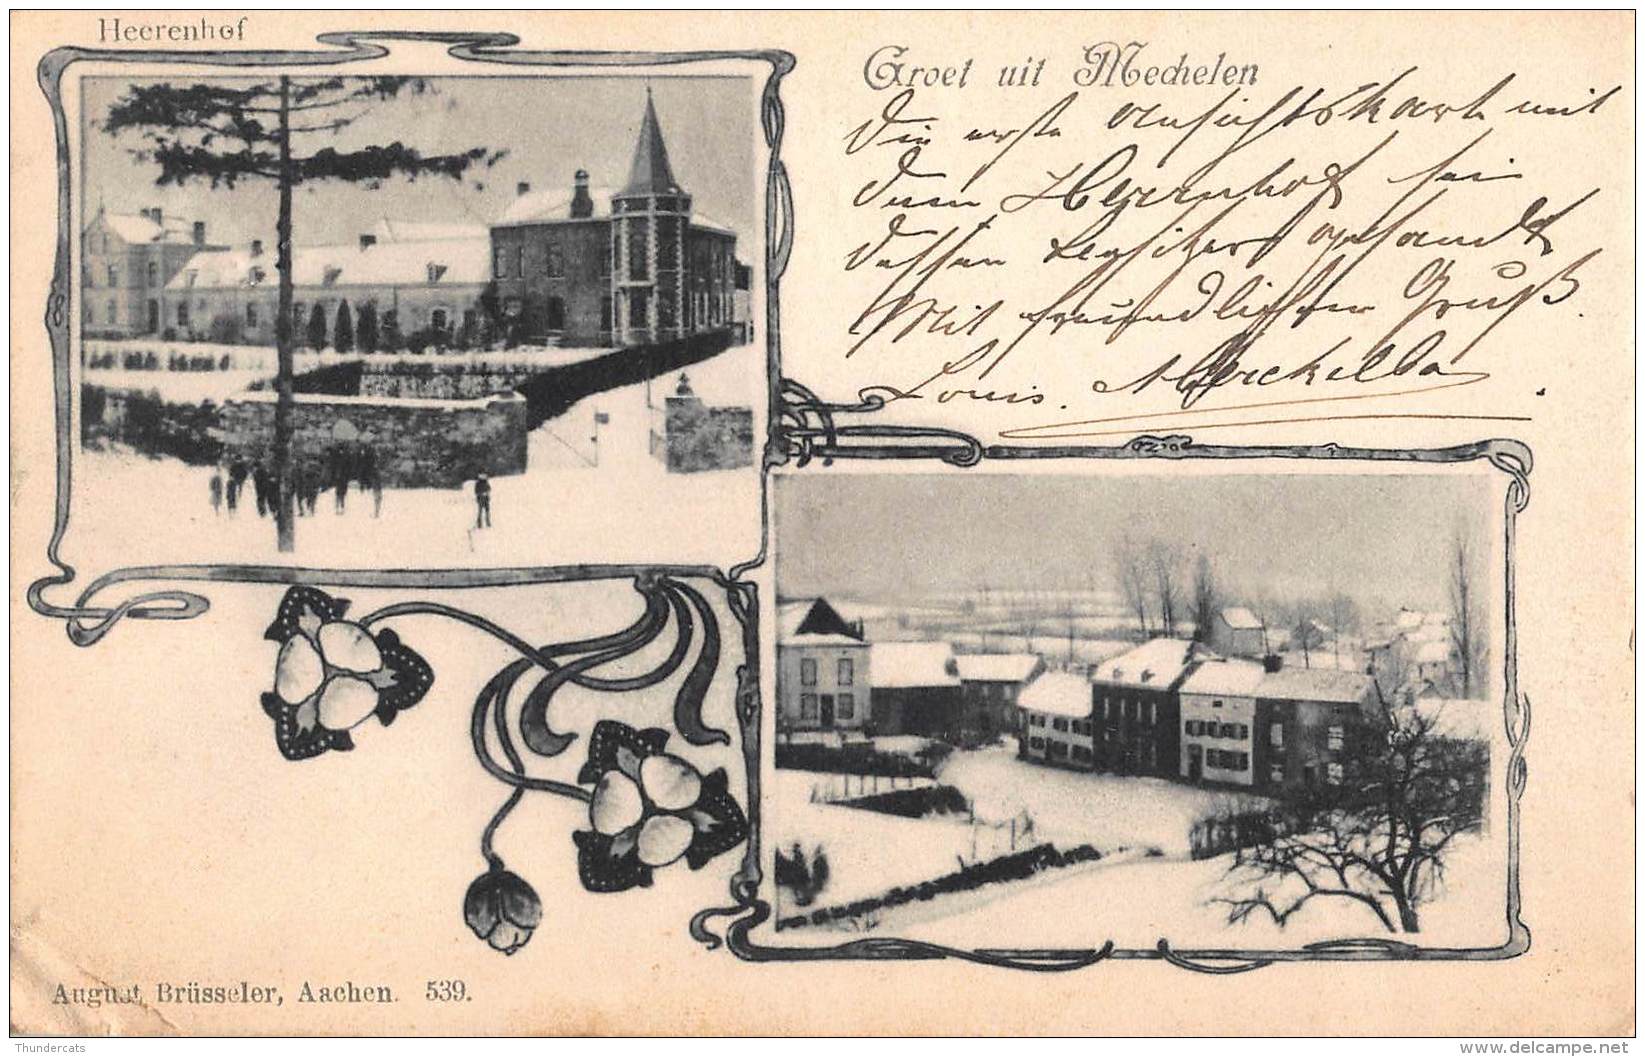 Heerenhof
Groet uit Mechelen
Die erste Ansichtskarte mit
dem Heerenhof sei
dessen Besitzer gesandt
Mit freundlichem Gruß.
Louis.
August Brüsseler, Aachen. 539.
Thundercats
delcampe.net